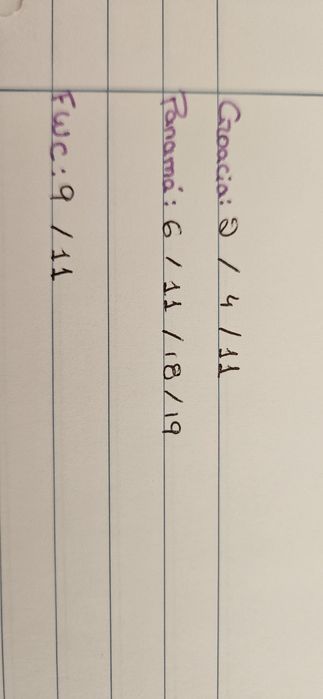 Croacia: 2 / 4 / 11
Panamá: 6 / 11 / 18 / 19
FWC: 9 / 11